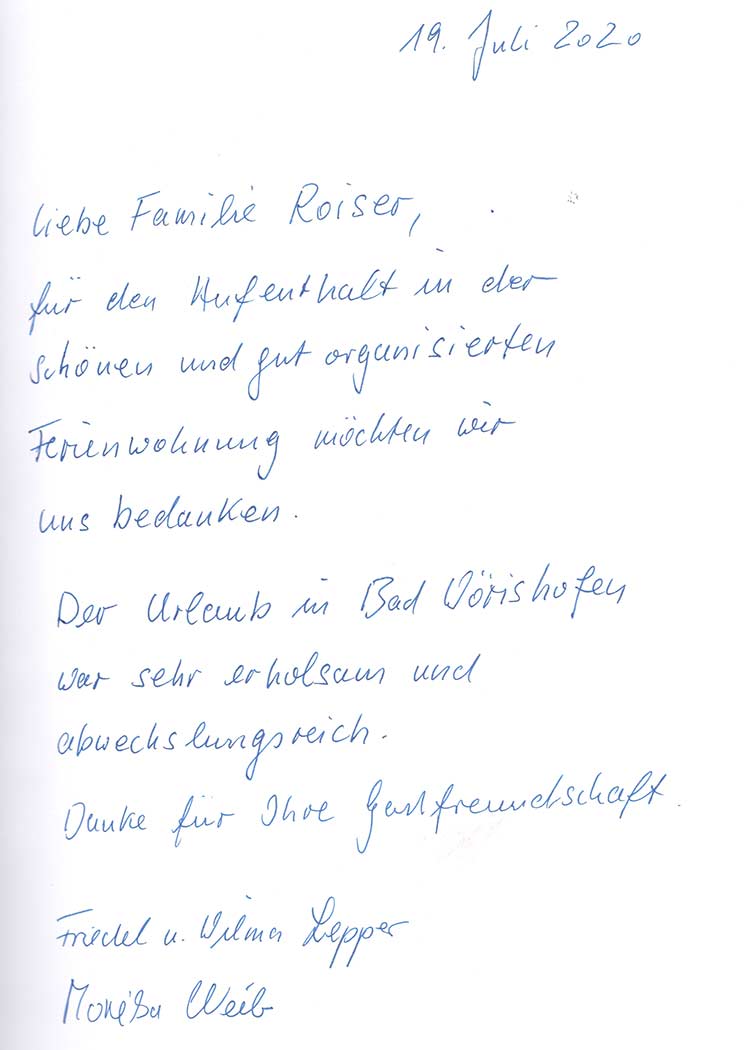 19. Juli 2020
Liebe Familie Roiser,
für den Aufenthalt in der
schönen und gut organisierten
Ferienwohnung möchten wir
uns bedanken.
Der Urlaub in Bad Wörishofen
war sehr erholsam und
abwechslungsreich.
Danke für Ihre Gastfreundschaft.
Friedel u. Wilma Lepper
Monika